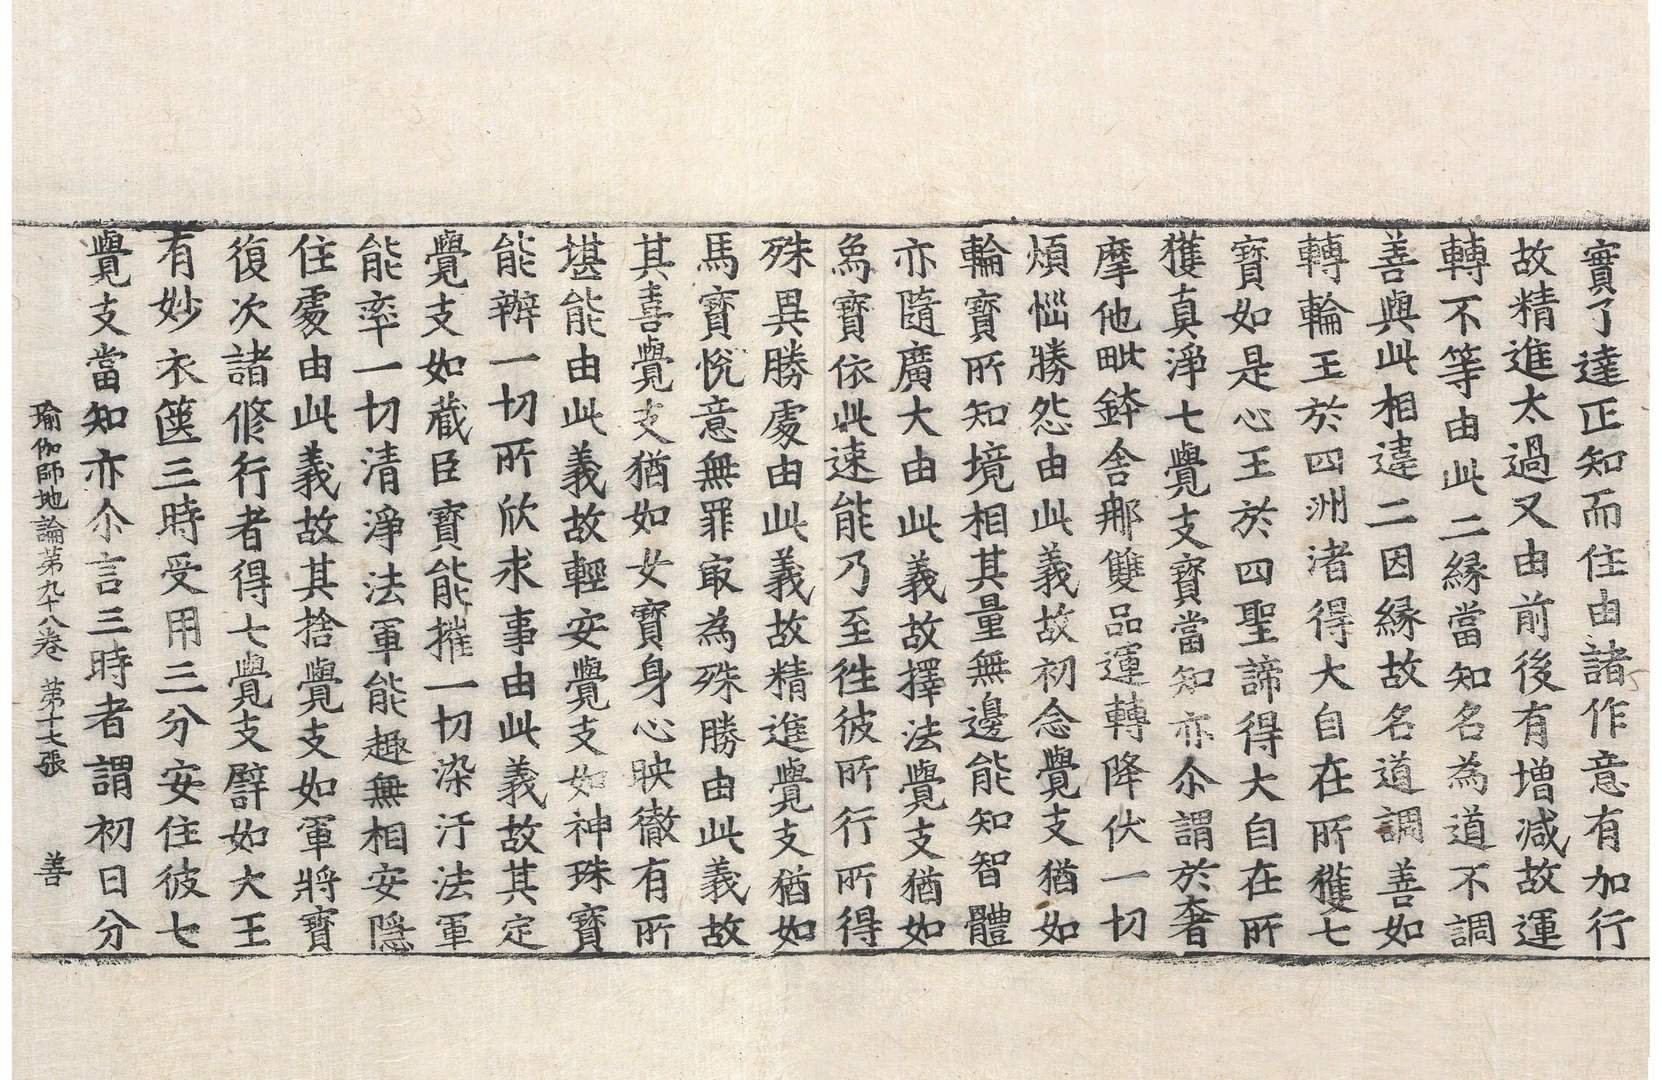 實了達正知而住由諸作意有加行
故精進太過又由前後有增減故運
轉不等由此二緣當知名為道不調
善與此相違二因緣故名道調善如
轉輪王於四洲渚得大自在所獲七
寶如是心王於四聖諦得大自在所
獲真淨七覺支寶當知亦尒謂於奢
摩他毗鉢舍那雙品運轉降伏一切
煩惱勝怨由此義故初念覺支猶如
輪寶所知境相其量無邊能知智體
亦隨廣大由此義故擇法覺支猶如
象寶依此速能乃至徃彼所行所得
殊異勝處由此義故精進覺支猶如
馬寶悅意無罪冣為殊勝由此義故
其喜覺支猶如女寶身心映徹有所
堪能由此義故輕安覺支如神珠寶
能辦一切所欣求事由此義故其定
覺支如藏臣寶能摧一切染汙法軍
能率一切清淨法軍能趣無相安隱
住處由此義故其捨覺支如軍將寶
復次諸修行者得七覺支譬如大王
有妙衣篋三時受用三分安住彼七
覺支當知亦尒言三時者謂初日分
瑜伽師地論第九十八卷 第十七張 善